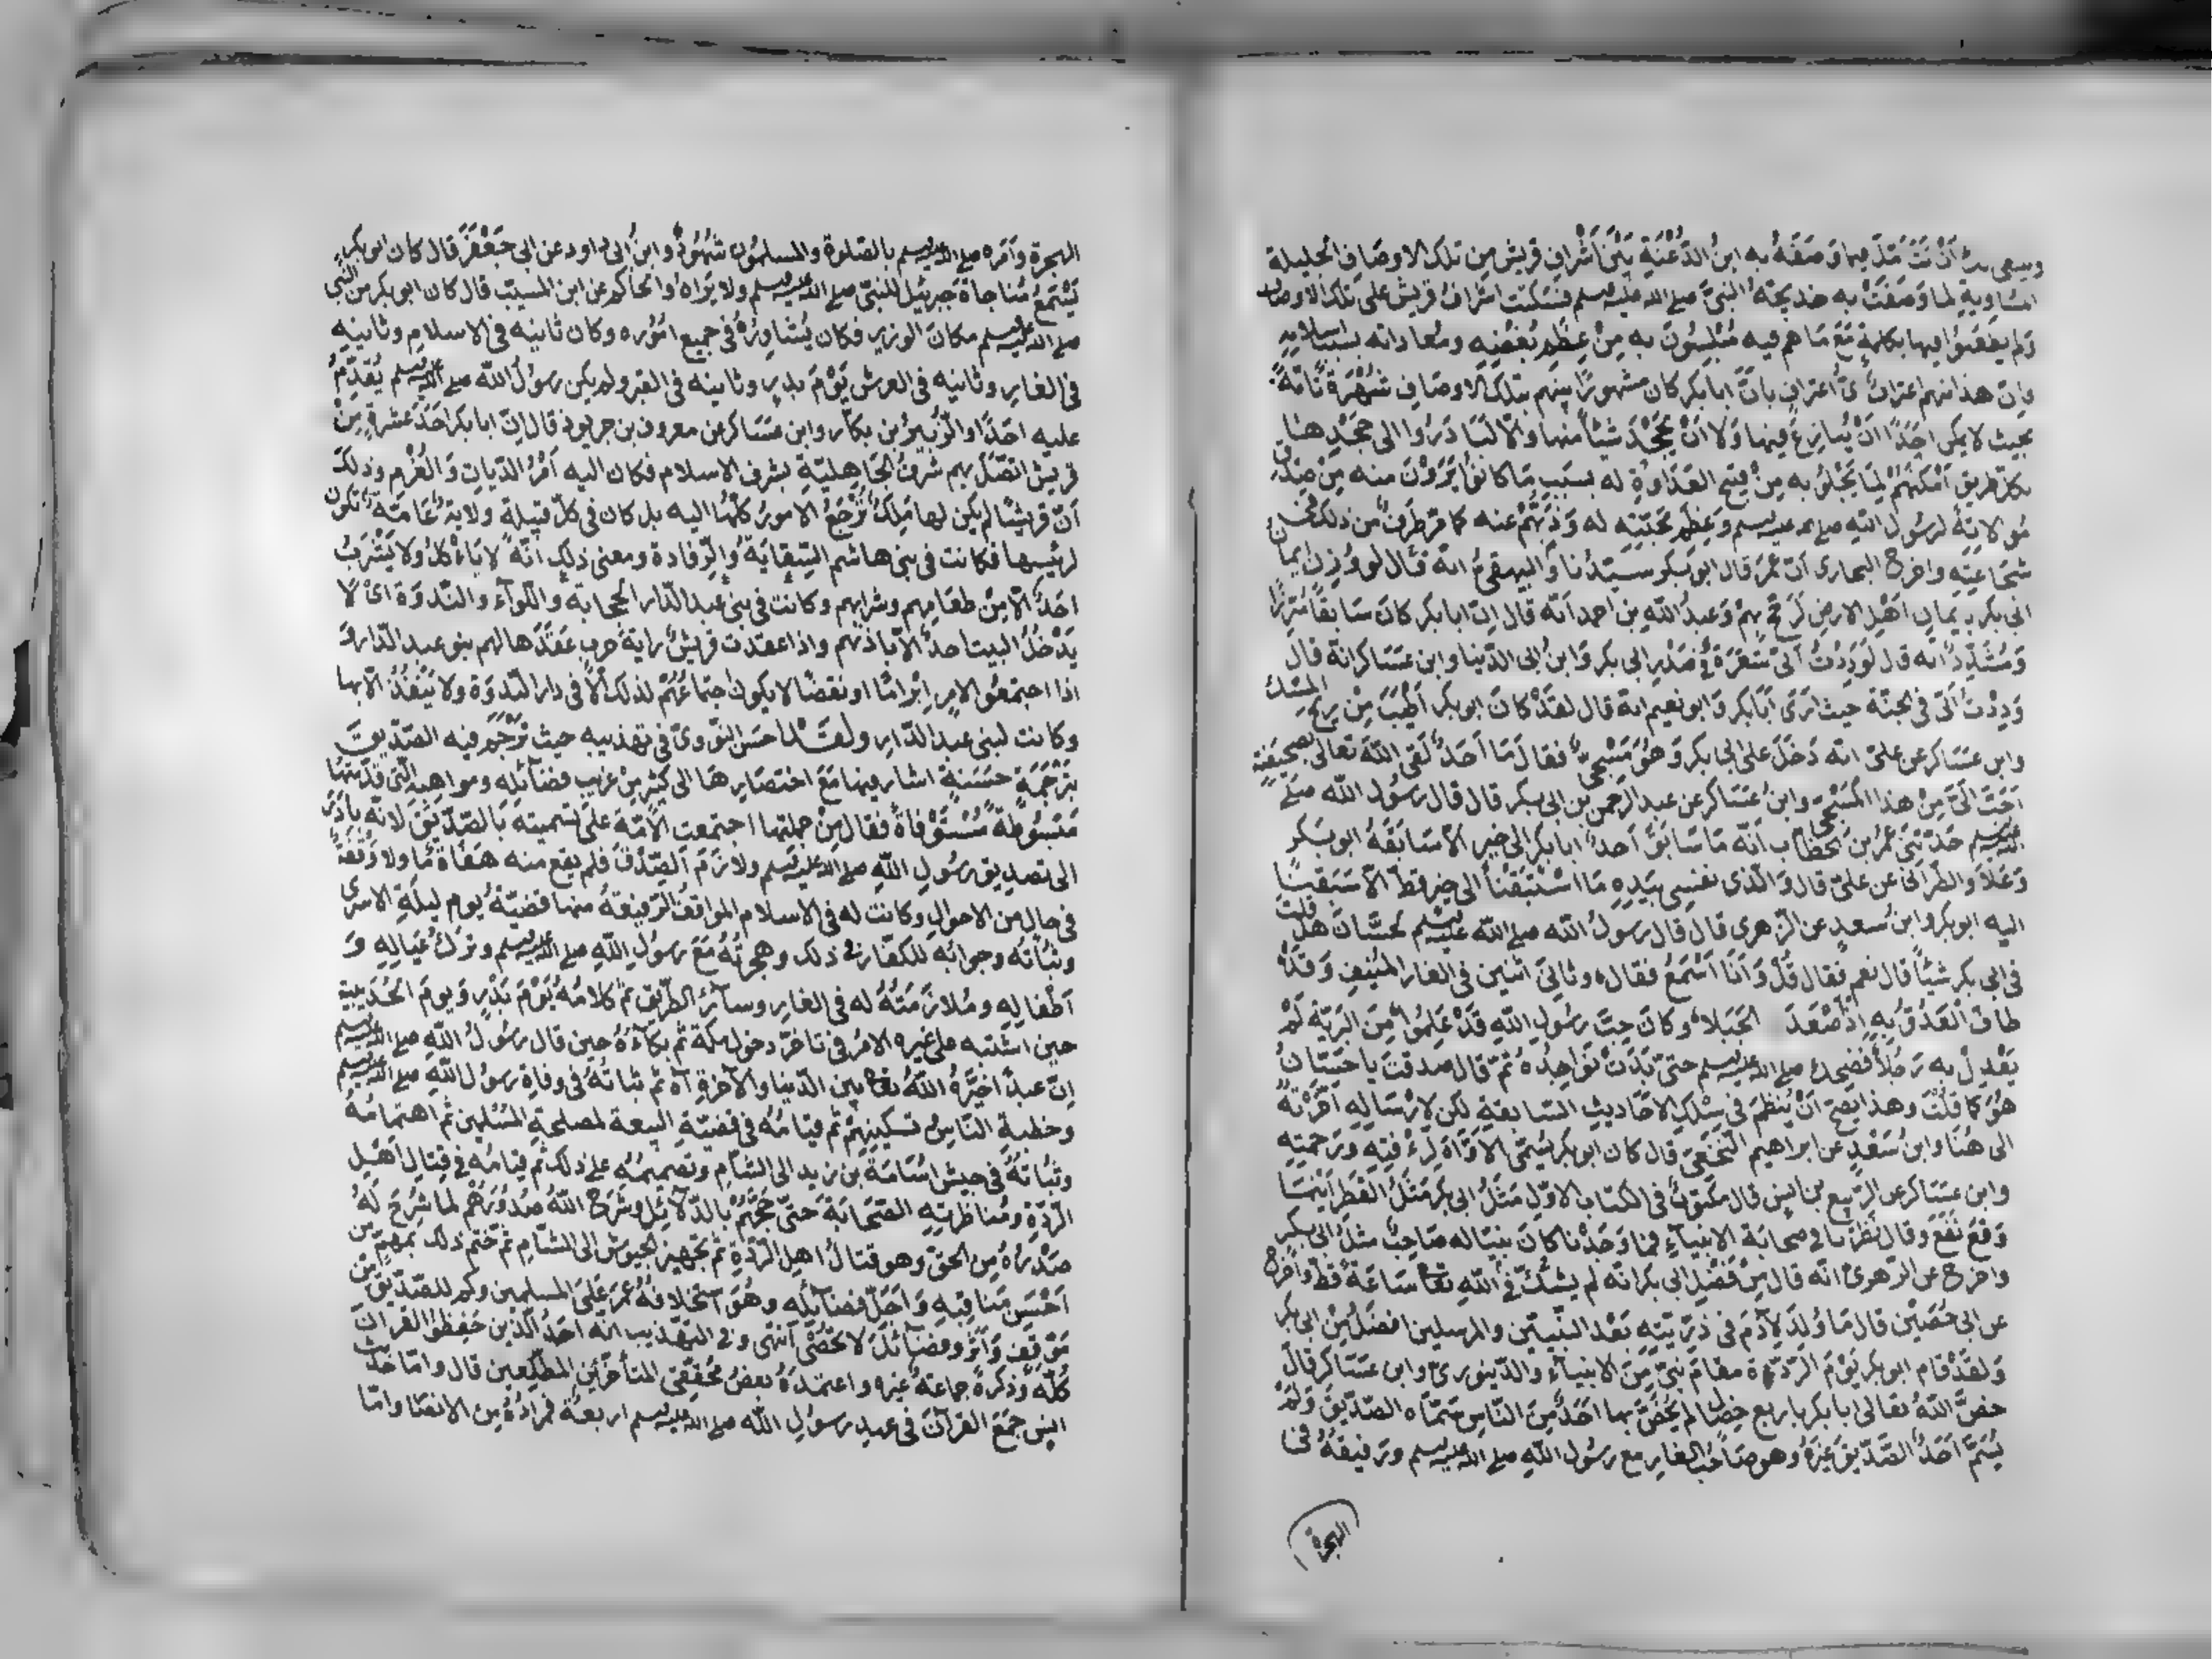 وينبغي لك أن تتأمل فيما وصفه به ابن الدغنة بين أشراف قريش من تلك الاوصاف الجليلة
المساوية لما وصفت به خديجة النبي صلى الله عليه وسلم فسكت اشراف قريش على تلك الاوصاف
ولم يطعنوا فيها بكلمة مع ما هم فيه متلبسون به من عظيم بغضه ومعاداته بسبب اسلامه
وان هذا منهم اعتراف أي اعتراف بان ابا بكر كان مشهورًا بينهم بتلك الاوصاف شهرة تامة
بحيث لا يمكن احدًا ان ينازع فيها ولا أن يجحد شيئًا منها والا لبادروا الى جحدها
بكل طريق أمكنهم لما يحلوا به من قبيح العداوة له بسبب ما كانوا يرون منه من صدق
موالاته لرسول الله صلى الله عليه وسلم وعظيم محبته له وذبهم عنه كما مر طرف من ذلك في
شجاعته واخرج البخاري أن عمر قال ابوبكر سيدنا والبيهقي انه قال لو وزن ايمان
ابي بكر بايمان اهل الارض لرجح بهم وعبد الله بن احمد انه قال ان ابا بكر كان سابقًا مبرزًا
ومسدد انه قال لوددت أني شعرة في صدر ابي بكر وابن ابي الدنيا وابن عساكر انه قال
وددت أني في الجنة حيث ارى أبا بكر وابو نعيم انه قال لقد كان ابو بكر أطيب من ريح المسك
وابن عساكر عن علي انه دخل على ابي بكر وهو مسجى فقال ما أحد لقي الله تعالى بصحيفته
أحب الي من هذا المسجى وابن عساكر عن عبد الرحمن بن ابي بكر قال قال رسول الله صلى
الله عليه وسلم حدثني عمر بن الخطاب أنه ما سابق أحد ابا بكر الى خير الا سابقه ابو بكر
والطبراني عن علي قال والذي نفسي بيده ما استبقنا الى خير قط الا سبقنا
اليه ابو بكر وابن سعد عن الزهري قال قال رسول الله صلى الله عليه وسلم لحسان هل قلت
في ابي بكر شيئًا قال نعم فقال قل وأنا أسمع فقال وثاني اثنين في الغار المنيف وقد
طاف العدو به اذ صعد الجبلا وكان حب رسول الله قد علموا من البرية لم
يعدل به رجلا فضحك صلى الله عليه وسلم حتى بدت نواجذه ثم قال صدقت يا حسان
هو كما قلت وهذا يصح أن ينظم في سلك الاحاديث السابقة لكن لارساله أخرته
الى هنا وابن سعد عن ابراهيم النخعي قال كان ابو بكر يسمى الاواه لرأفته ورحمته
وابن عساكر عن الربيع بن انس قال مكتوب في الكتاب الاول مثل ابي بكر مثل القطر أينما
وقع نفع وقال نظرنا في صحابة الانبياء فما وجدنا كان نبيًا له صاحب مثل ابي بكر
واخرج عن الزهري انه قال من فضل ابي بكر انه لم يشك في الله تعالى ساعة قط واخرج
عن ابي حصين قال ما ولد لآدم في ذريته بعد النبيين والمرسلين افضل من ابي بكر
ولقد قام ابو بكر يوم الردة مقام نبي من الانبياء والدينوري وابن عساكر قال
خص الله تعالى ابا بكر باربع خصال لم يخص بها احد من الناس سماه الصديق ولم
يسم أحد الصديق غيره وهو صاحب الغار مع رسول الله صلى الله عليه وسلم ورفيقه في
الهجرة
الهجرة وأمره صلى الله عليه وسلم بالصلوة والمسلمون شهود وابن ابي داود عن ابي جعفر قال كان ابو بكر
يستمع مناجاة جبرئيل للنبي صلى الله عليه وسلم ولا يراه والحاكم عن ابن المسيب قال كان ابو بكر من النبي
صلى الله عليه وسلم مكان الوزير فكان يشاوره في جميع اموره وكان ثانيه في الاسلام وثانيه
في الغار وثانيه في العرش يوم بدر وثانيه في القبر ولم يكن رسول الله صلى الله عليه وسلم يقدم
عليه احدًا والزبير بن بكار وابن عساكر عن معروف بن خربوذ قال ان ابا بكر احد عشرة من
قريش اتصل بهم شرف الجاهلية بشرف الاسلام فكان اليه أمر الديات والغرم وذلك
أن قريشًا لم يكن لها ملك ترجع الامور كلها اليه بل كان في كل قبيلة ولاية عامة تكون
لرئيسها فكانت في بني هاشم السقاية والرفادة ومعنى ذلك انه لا يأكل ولا يشرب
احد الا من طعامهم وشرابهم وكانت في بني عبد الدار الحجابة واللواء والندوة اى لا
يدخل البيت احد الا باذنهم واذا عقدت قريش راية حرب عقدها لهم بنو عبد الدار و
اذا اجتمعوا لامر ابرامًا او نقضًا لا يكون اجتماعهم لذلك الا في دار الندوة ولا ينفذ الا بها
وكانت لبني عبد الدار ولقد احسن النووي في تهذيبه حيث ترجم فيه الصديق
بترجمة حسنة اشار فيها مع اختصارها الى كثير من غرر فضائله ومواهبه التي قدمتها
مبسوطة مستوفاة فقال من جملتها اجتمعت الامة على تسميته بالصديق لانه بادر
الى تصديق رسول الله صلى الله عليه وسلم ولازم الصدق فلم يقع منه هفاة ما ولا وقفة
في حال من الاحوال وكانت له في الاسلام المواقف الرفيعة منها قضية يوم ليلة الاسرى
وثباته وجوابه للكفار في ذلك وهجرته مع رسول الله صلى الله عليه وسلم وترك عياله و
أطفاله وملازمته له في الغار وسائر الطريق ثم كلامه يوم بدر ويوم الحديبية
حين اشتبه على غيره الامر في تاخر دخول مكة ثم بكاءه حين قال رسول الله صلى الله عليه وسلم
ان عبدًا خيره الله تعالى بين الدنيا والآخرة آه ثم ثباته في وفاة رسول الله صلى الله عليه وسلم
وخطبة الناس وتسكينهم ثم قيامه في قضية البيعة لمصلحة المسلمين ثم اهتمامه
وثباته في جيش اسامة بن زيد الى الشام وتصميمه على ذلك ثم قيامه في قتال أهل
الردة ومناظرته الصحابة حتى حجهم بالدلائل وشرح الله صدورهم لما شرح له
صدره من الحق وهو قتال اهل الردة ثم تجهيز الجيوش الى الشام ثم ختم ذلك بمهم من
أحسن مناقبه وأجل فضائله وهو استخلافه عمر على المسلمين وكم للصديق من
موقف وأثر وفضائل لا تحصى انتهى وفي التهذيب انه احد الذين حفظوا القرآن
كله وذكره جماعة غيره واعتمده بعض محققي المتأخرين المطلعين قال واما حديث
انس جمع القرآن في عهد رسول الله صلى الله عليه وسلم اربعة فمراده من الانصار واما